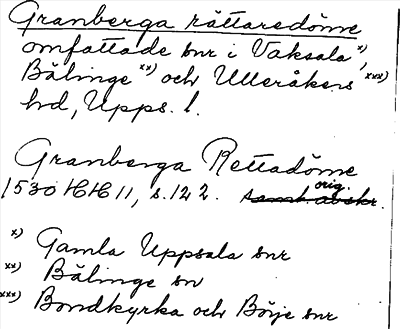 Granberga rättaredöme
omfattade snr i Vaksala x),
Bälinge xx) och Ulleråkers xxx)
hd, Upps. l.
Granberga Rettadöme
1530 HH 11, s. 122. samt avskr. orig.
x) Gamla Uppsala snr
xx) Bälinge sn
xxx) Bondkyrka och Börje snr